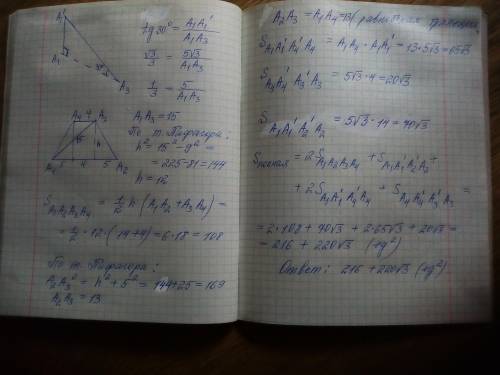 A₁'
A₁
30°
A₃
tg 30° = A₁A₁' / A₁A₃
√3/3 = 5√3 / A₁A₃
1/3 = 5 / A₁A₃
A₄ 4 A₃
15
h
A₁ 5 4 5 A₂
A₁A₃ = 15
По т. Пифагора:
h² = 15² - 9² =
= 225 - 81 = 144
h = 12
S A₁A₂A₃A₄ = 1/2 h · (A₁A₂ + A₃A₄) =
= 1/2 · 12 · (14 + 4) = 6 · 18 = 108
По т. Пифагора:
A₂A₃² = h² + 5² = 144 + 25 = 169
A₂A₃ = 13
A₂A₃ = A₁A₄ = 13 (
S A₁A₁'A₄'A₄ = A₁A₄ · A₁A₁' = 13 · 5√3 = 65√3
S A₄A₄'A₃'A₃ = 5√3 · 4 = 20√3
S A₁A₁'A₂'A₂ = 5√3 · 14 = 70√3
Sполная = 2S A₁A₂A₃A₄ + S A₁A₁'A₂'A₂ +
+ 2S A₁A₁'A₄'A₄ + S A₄A₄'A₃'A₃ =
= 2 · 108 + 70√3 + 2 · 65√3 + 20√3 =
= 216 + 220√3 (ед²)
Ответ: 216 + 220√3 (ед²)